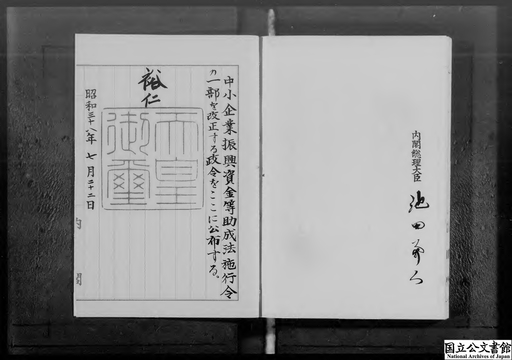 中小企業振興資金等助成法施行令
の一部を改正する政令をここに公布する。
裕仁
天皇御璽
昭和三十八年七月二十二日
内閣
内閣総理大臣
池田勇人
国立公文書館
National Archives of Japan